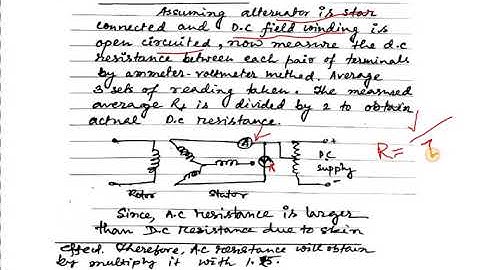 Assuming alternator is star
connected and D.C field winding is
open circuited, now measure the d.c
resistance between each pair of terminals
by ammeter-voltmeter method. Average
3 sets of reading taken. The measured
average Rt is divided by 2 to obtain
actual D.c resistance.
A
+
D.C
supply
-
R =
Rotor
Stator
Since, A.C resistance is larger
than D.C resistance due to skin
effect. Therefore, A.C resistance will obtain
by multiply it with 1.5.